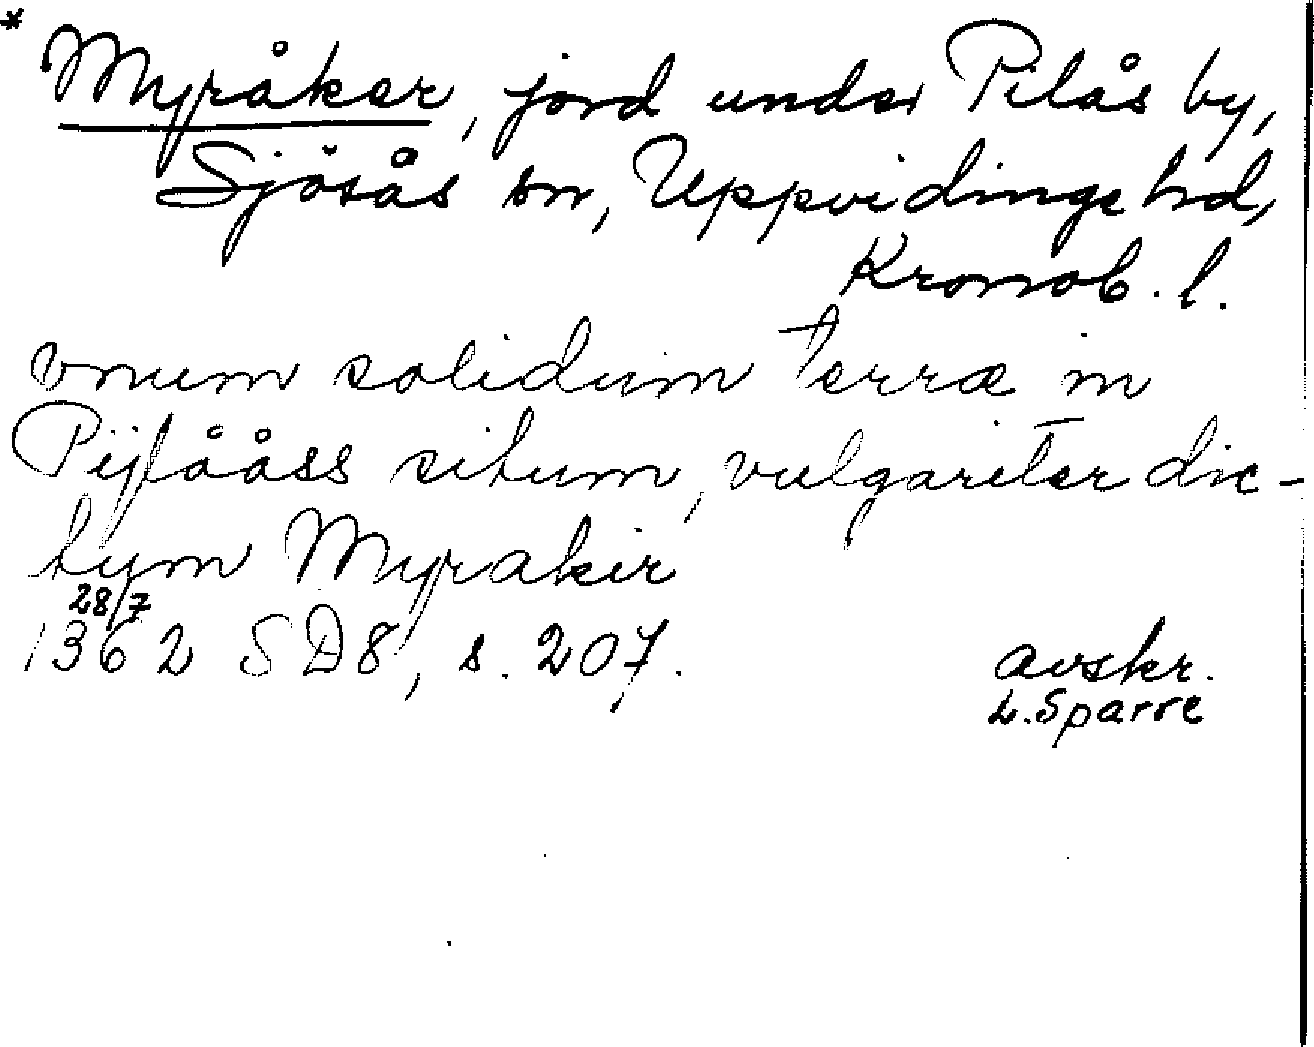 * Myråker, jord under Pilås by,
Sjösås sn, Uppvidinge hd,
Kronob. l.
vnum solidum terræ in
Pijlååss situm, vulgariter dic-
tum Myrakir
28/7
1362 SD8, s. 207.
avskr.
L. Sparre